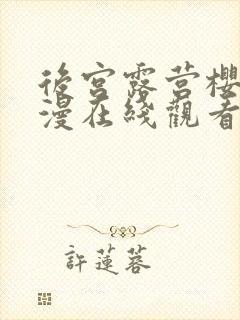 後宮露营樱
漫在綫觀看
許蓮蓉